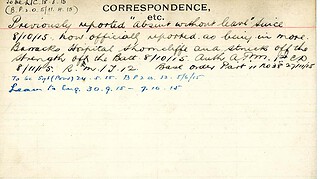 to be A/C. 18.8.15
(B.P.2.0. 5/11.11.15)
CORRESPONDENCE,
etc.
Previously reported "absent without leave" since
8/10/15. now officially reported as being in more.
Barracks Hospital Shorncliffe and struck off the
strength off the Batt 8/10/15 Auth. A.P.M. 1st CD
8/11/15. R.M. 1 J.12. Base order Part II RO 38 27/11/15
To be Sgt (Prov) 24.5.15 BP 2 o. 12. 5/6/15
Leave to Eng. 30.9.15 - 7.10.15